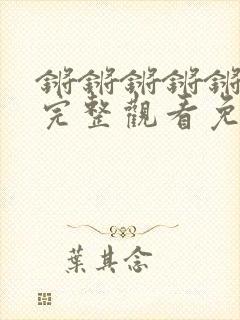 锵锵锵锵锵
完整觀看免
葉其念